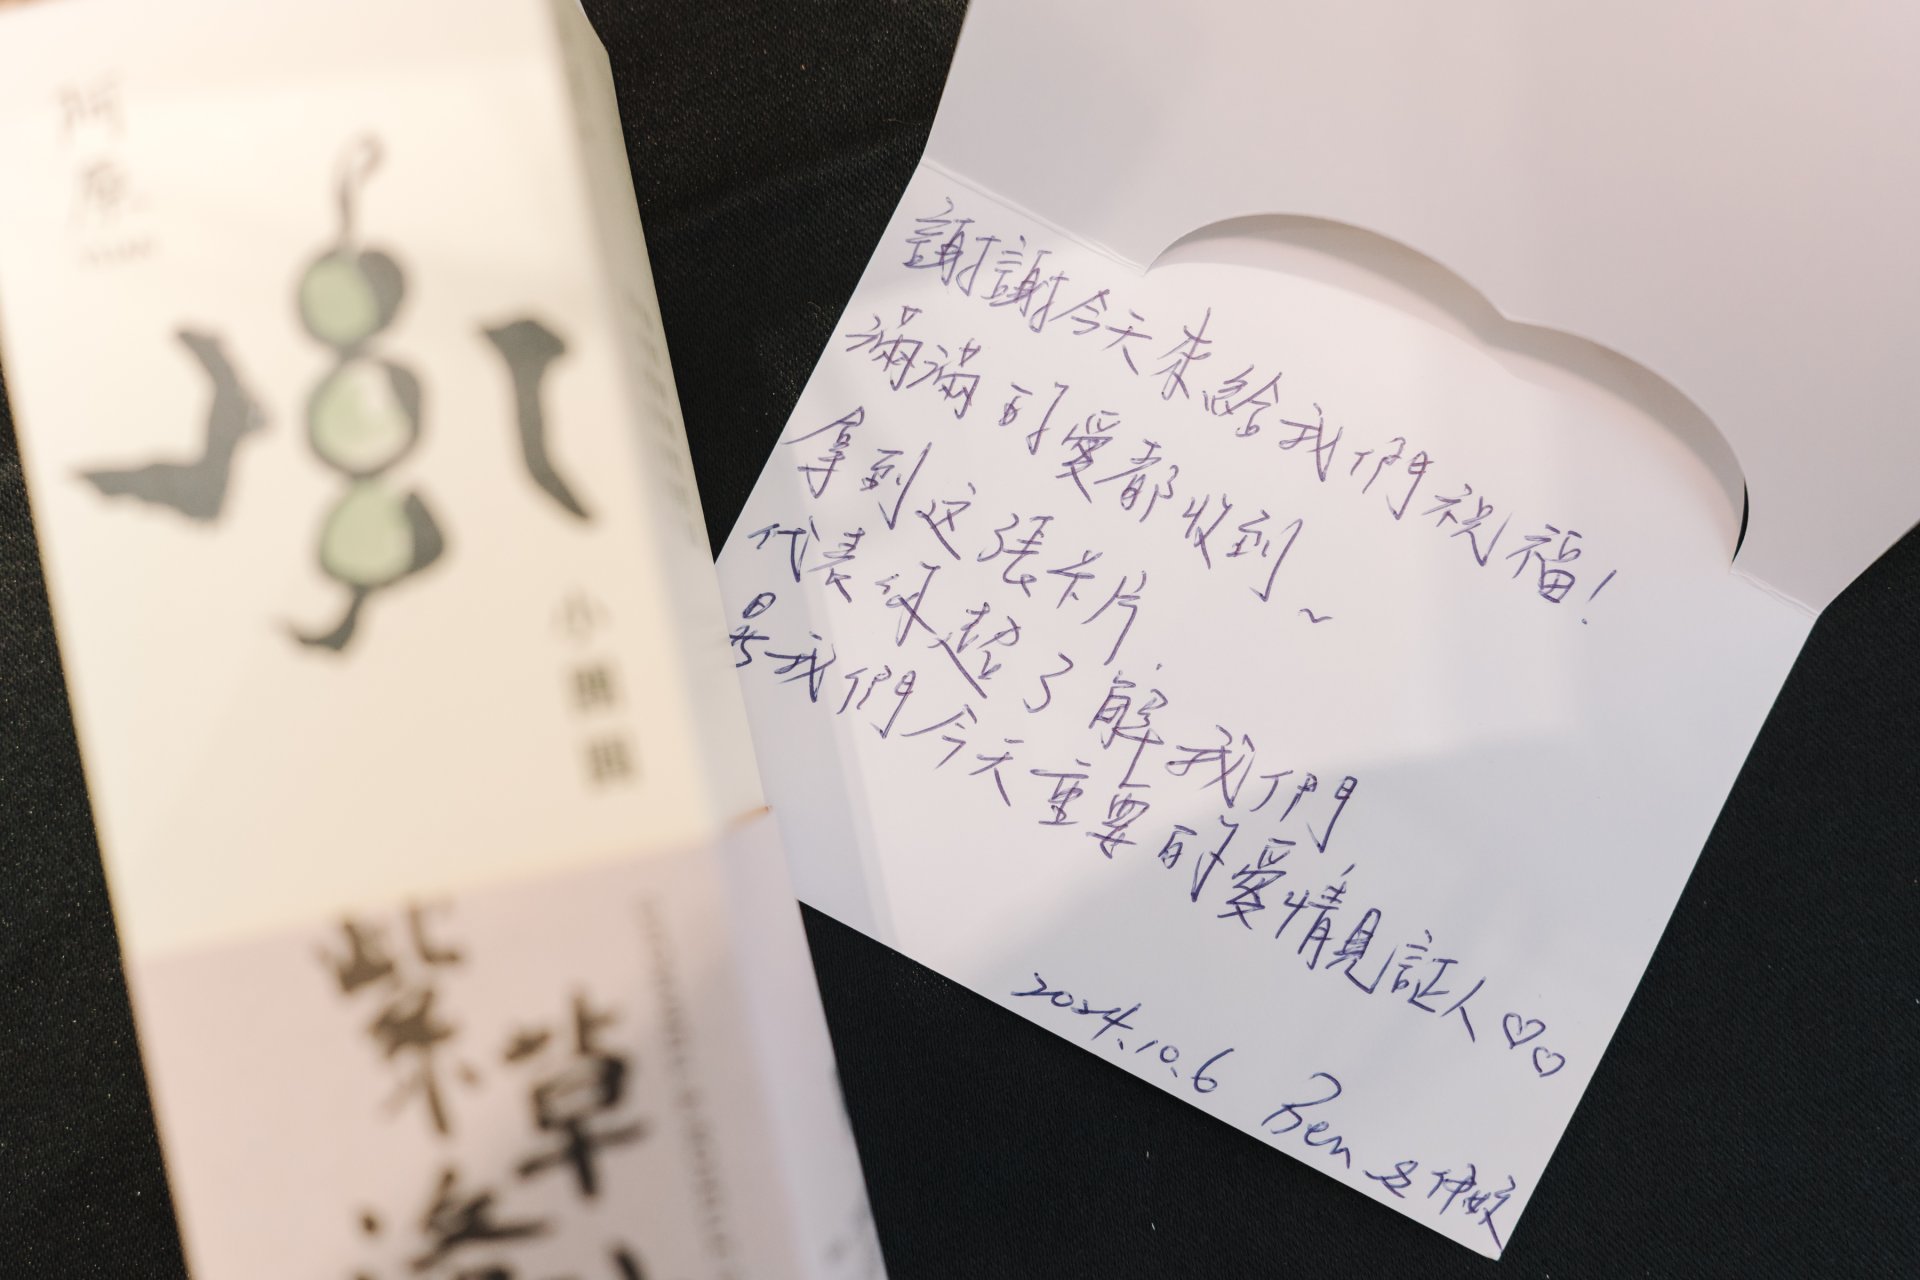 阿原
小粥粥
紫草
謝謝今天來給我們祝福!
滿滿的愛都收到~
拿到这張卡片
代表你超了解我們
是我們今天重要的愛情見証人♡♡
2024.10.6 Ben &